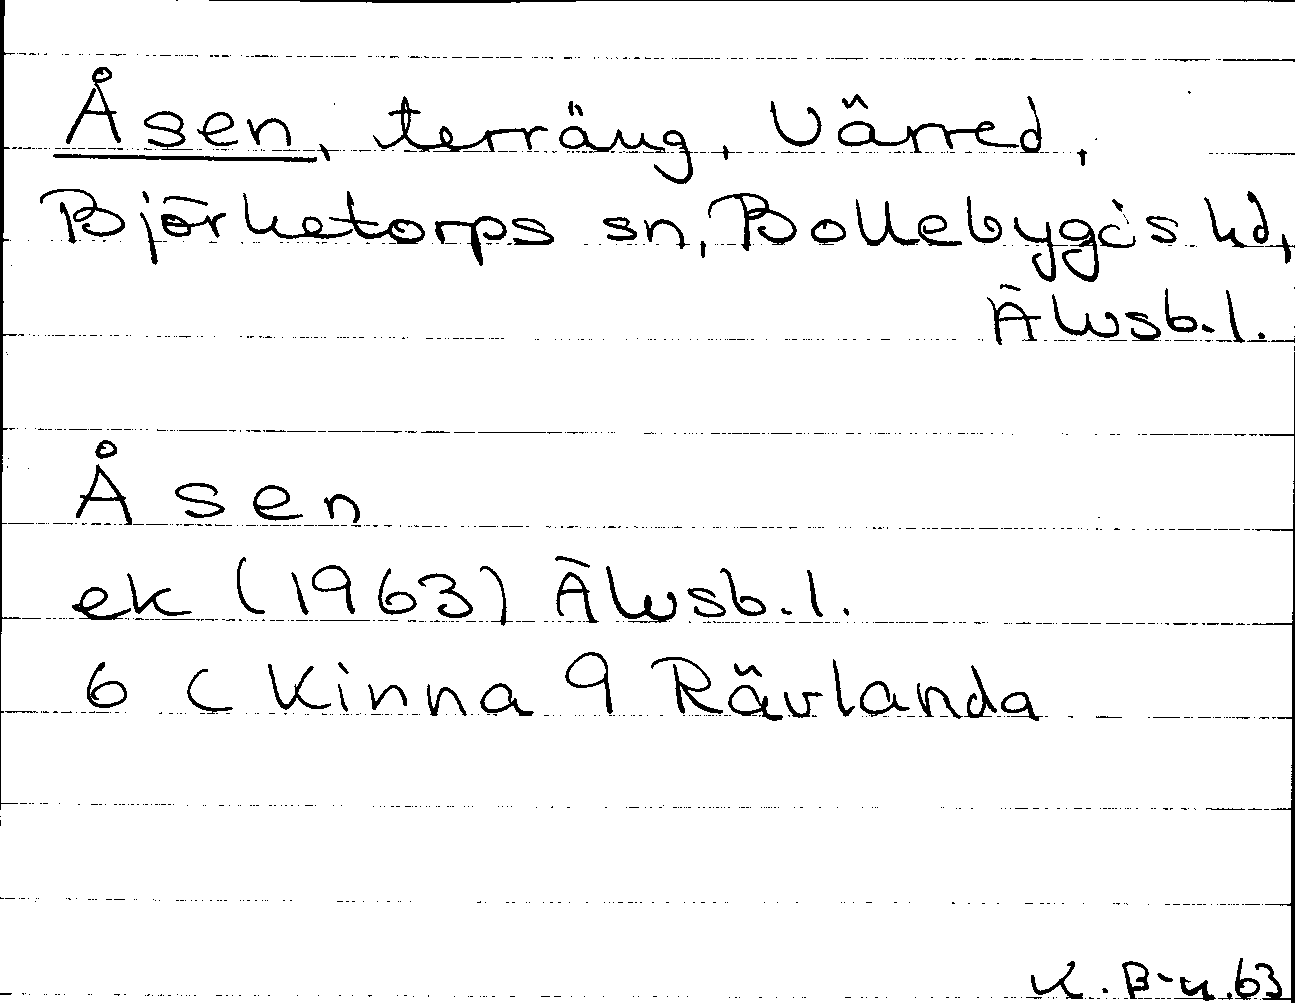 Åsen, terräng, Värred,
Björketorps sn, Bollebygds hd,
Älvsb.l.
Åsen
ek (1963) Älvsb.l.
6 C Kinna 9 Rävlanda
K. B-n. 63